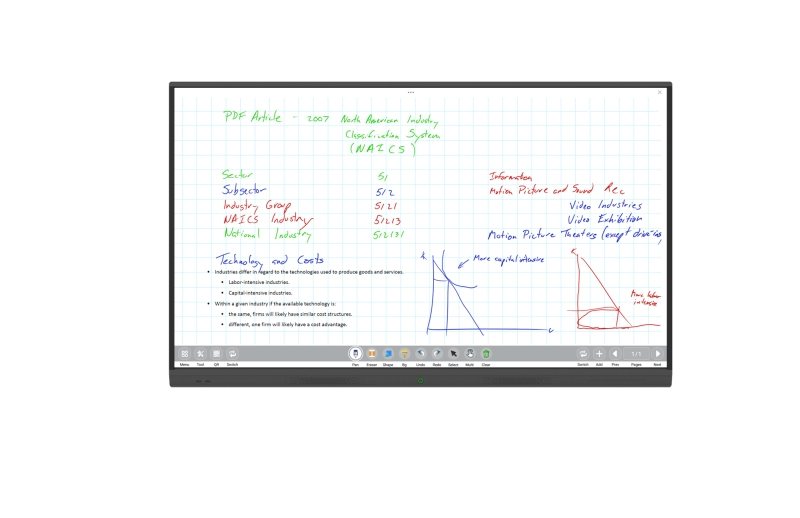 PDF Article - 2007 North American Industry
Classification System
(NAICS)
Sector 51 Information
Subsector 512 Motion Picture and Sound Rec
Industry Group 5121 Video Industries
NAICS Industry 51213 Video Exhibition
National Industry 512131 Motion Picture Theaters (except drive-ins,
Technology and Costs
• Industries differ in regard to the technologies used to produce goods and services.
• Labor-intensive industries.
• Capital-intensive industries.
• Within a given industry if the available technology is:
• the same, firms will likely have similar cost structures.
• different, one firm will likely have a cost advantage.
K
More capital intensive
L
K
More labor
intensive
Menu Tool QR Switch Pen Eraser Shape Undo Redo Select Multi Clear Switch Add Prev Pages Next
1/1